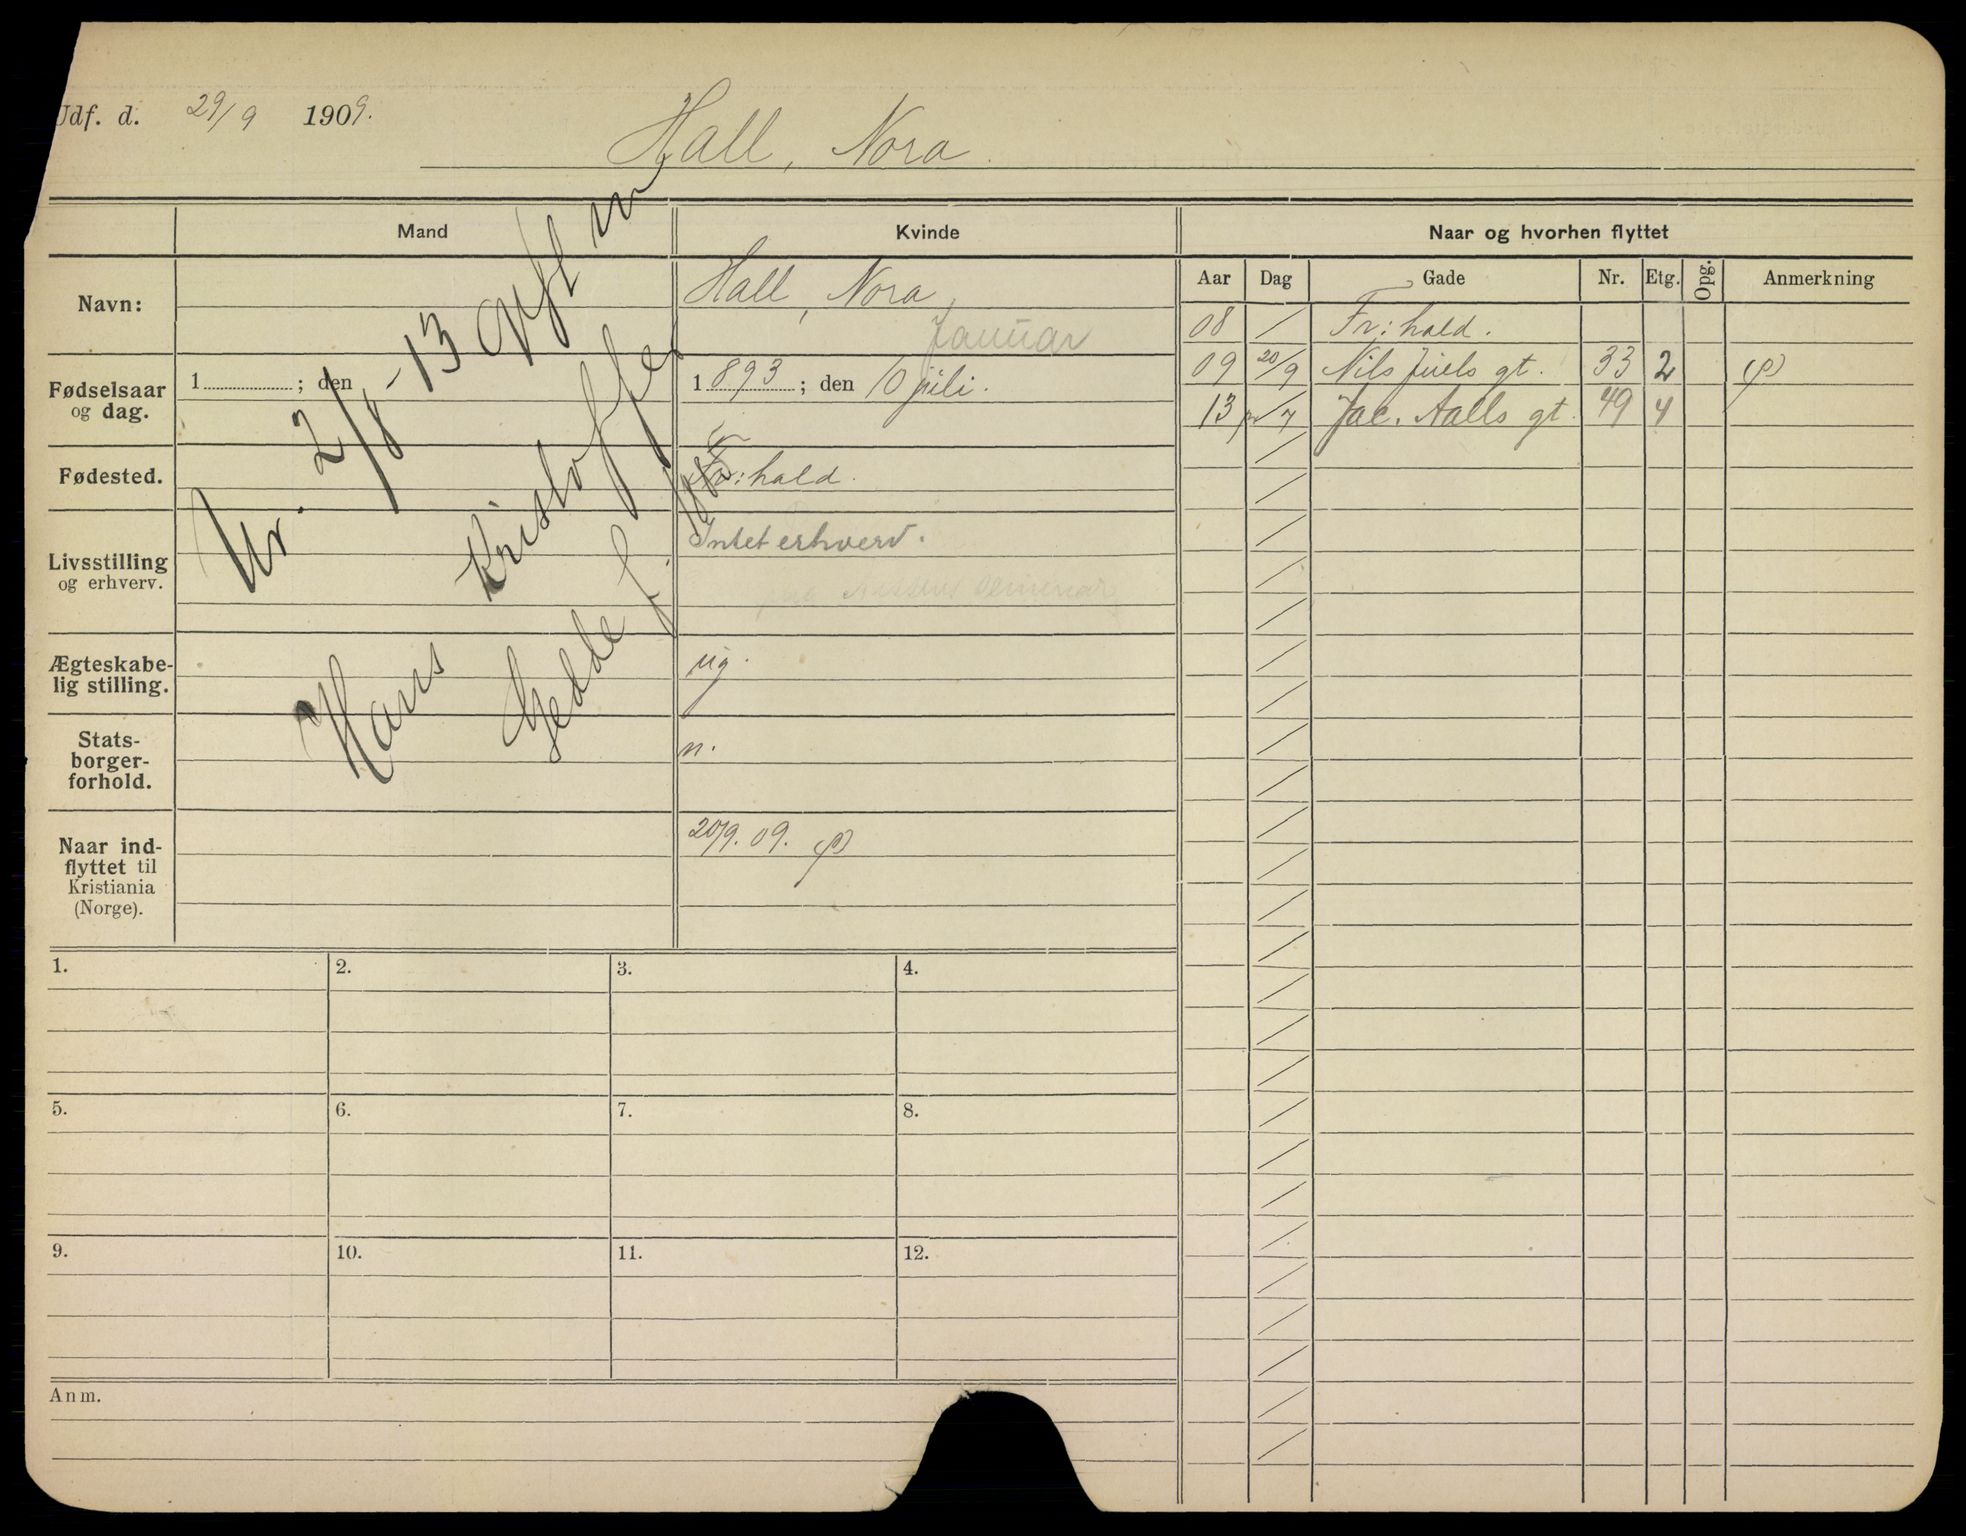 Udf. d. 29/9 1909.
Hall, Nora.
Mand
Kvinde
Naar og hvorhen flyttet
Navn:
Hall, Nora,
Januar
Fødselsaar og dag.
1 ; den
1893 ; den 10 juli.
Fødested.
Fr:hald.
Livsstilling og erhverv.
Intet erhverv.
Ægteskabe-
lig stilling.
ug.
Stats-
borger-
forhold.
n.
Naar ind-
flyttet til
Kristiania
(Norge).
20/9. 09. (p)
Ur. 2/8-13 gift m
Hans Kristoffer
Gedde f.
Aar Dag Gade Nr. Etg. Opg. Anmerkning
08 / Fr:hald.
09 20/9 Nils Juels gt. 33 2 (p)
13 /7 Jac. Aalls gt. 49 4
1. 2. 3. 4.
5. 6. 7. 8.
9. 10. 11. 12.
Anm.